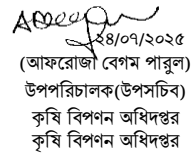 ২৪/০৭/২০২৫
(আফরোজা বেগম পারুল)
উপপরিচালক(উপসচিব)
কৃষি বিপণন অধিদপ্তর
কৃষি বিপণন অধিদপ্তর